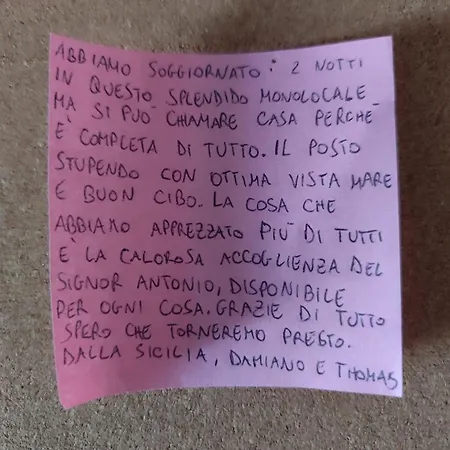 ABBIAMO SOGGIORNATO: 2 NOTTI
IN QUESTO SPLENDIDO MONOLOCALE
MA SI PUO' CHIAMARE CASA PERCHE
E' COMPLETA DI TUTTO. IL POSTO
STUPENDO CON OTTIMA VISTA MARE
E BUON CIBO. LA COSA CHE
ABBIAMO APPREZZATO PIU' DI TUTTI
E' LA CALOROSA ACCOGLIENZA DEL
SIGNOR ANTONIO, DISPONIBILE
PER OGNI COSA. GRAZIE DI TUTTO
SPERO CHE TORNEREMO PRESTO.
DALLA SICILIA, DAMIANO E THOMAS